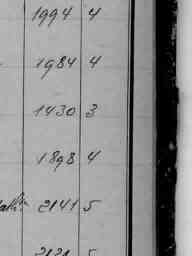 1994 4
1984 4
1430 3
1898 4
2141 5